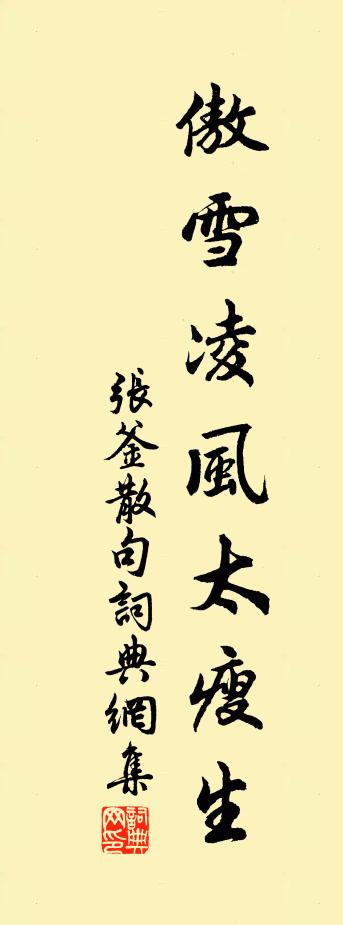 傲雪凌風太瘦生
張釜散句詞典網集
詞典
网印